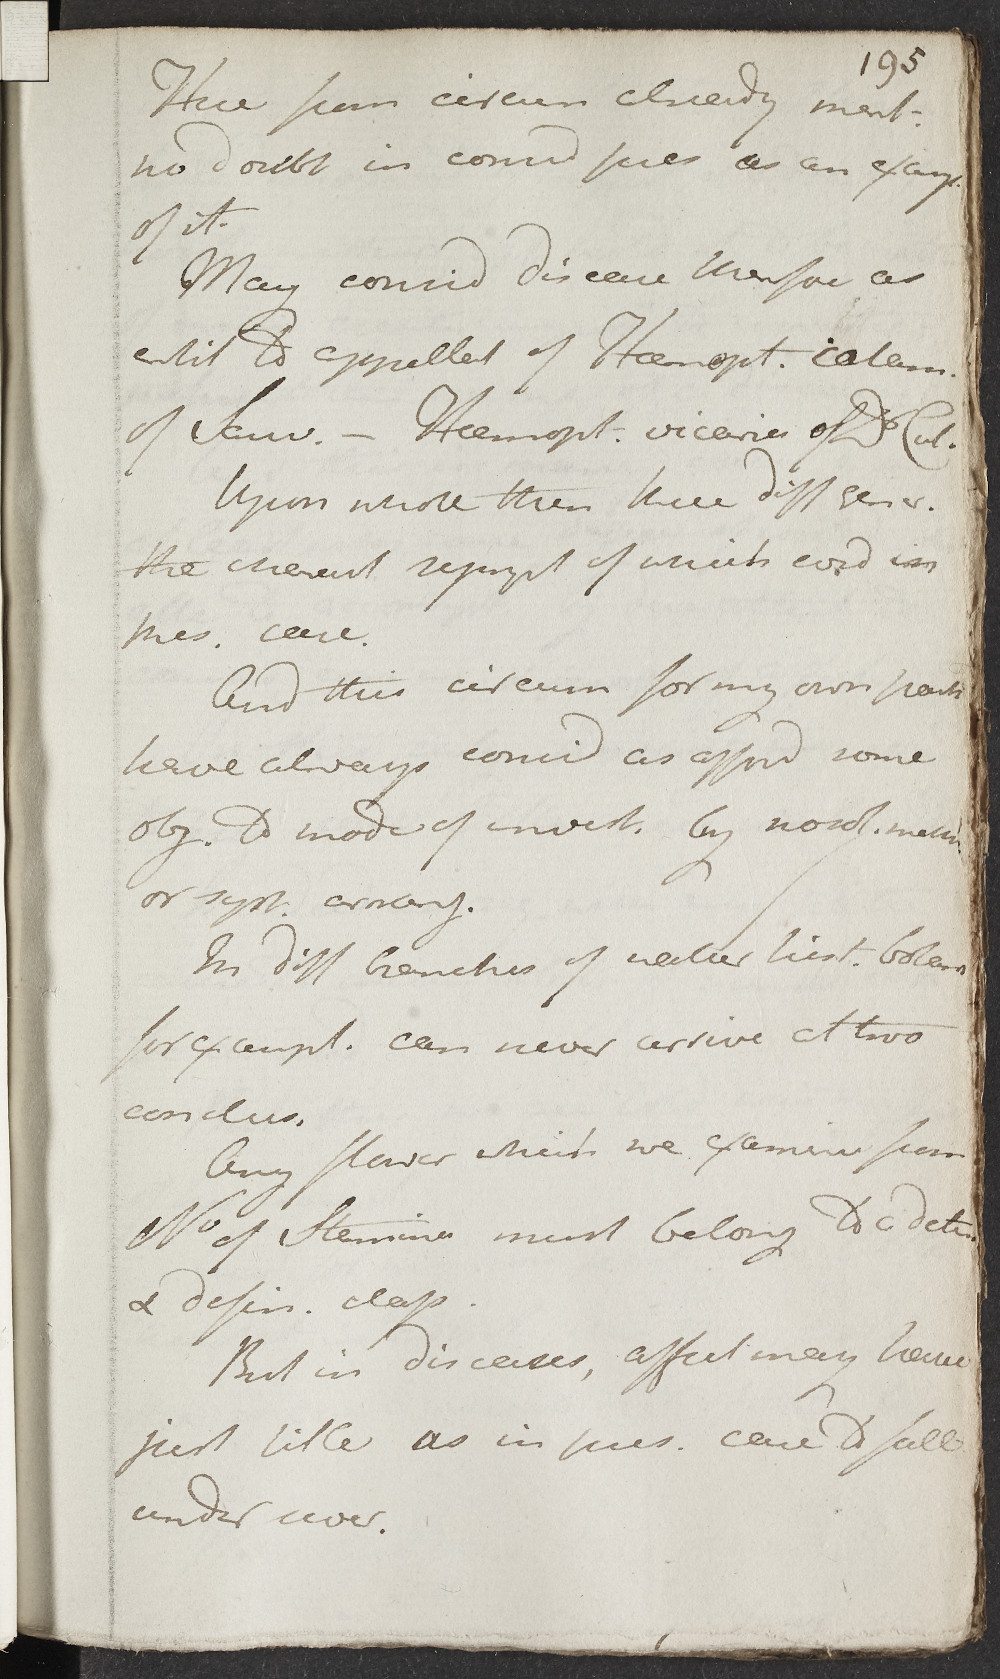 195
Here from circum already ment.
no doubt in consid pres as an examp.
of it.
May consid disease therefore as
entit to appellat of Hæmopt. catam.
of Sauv. — Hæmopt. vicaries of Dr Cul.
Upon whole then three diff gener.
the characts of which in
pres. case.
And this circum for my own part
have always consid as afford some
obj. to mode of invest. by nosol. meth.
or syst. arrang.
In diff branches of natur hist. botany
for exampl. can never arrive at two
conclus.
Any flower which we examine from
No of Stamina must belong to a deter
& defin. class.
But in diseases, affect may have
just title as in pres. case to fall
under